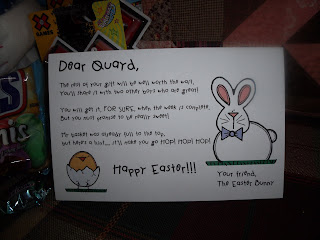 Dear Quard,
The rest of your gift will be well worth the wait,
You'll share it with two other boys who are great!
You will get it, FOR SURE, when the week is complete,
But you must promise to be really sweet!
My basket was already full to the top,
but here's a hint..... it'll make you go HOP! HOP! HOP!
Happy Easter!!!
Your friend,
The Easter Bunny
GAMES